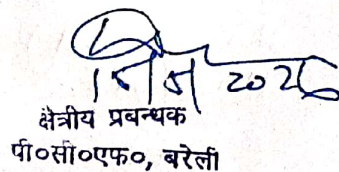 2026
क्षेत्रीय प्रबन्धक
पी०सी०एफ०, बरेली